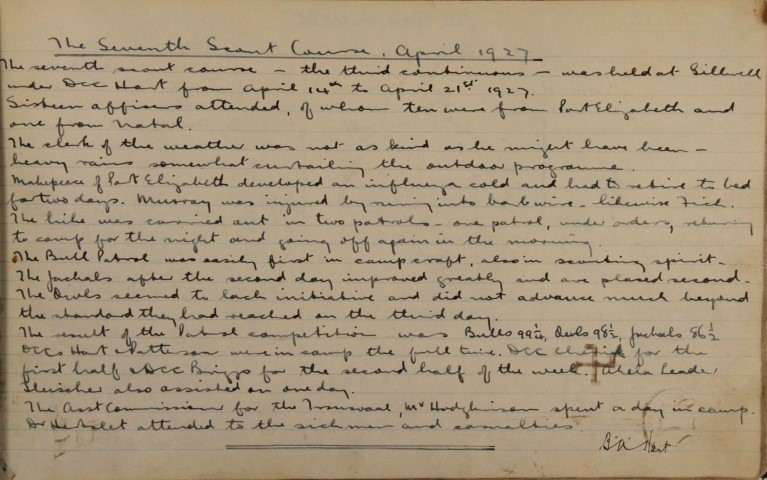 The Seventh Scout Course, April 1927
The seventh scout course - the third continuous - was held at Gillwell
under DCC Hart from April 14th to April 21st 1927.
Sixteen officers attended, of whom ten were from Port Elizabeth and
one from Natal.
The clerk of the weather was not as kind as he might have been -
heavy rains somewhat curtailing the outdoor programme.
Makepiece of Port Elizabeth developed an influenza cold and had to retire to bed
for two days. Murray was injured by runing into barb wire - likewise Fich.
The hike was carried out in two patrols - one patrol, under orders, returning
to camp for the night and going off again in the morning.
The Bull Patrol was easily first in camp craft, also in scouting spirit.
The Jackals after the second day improved greatly and are placed second.
The Owls seemed to lack initiative and did not advance much beyond
the standard they had reached on the third day.
The result of the Patrol competition was Bulls 99¼, Owls 98½, Jackals 86½
DCCs Hart & Patterson were in camp the full time. DCC for the
first half & DCC Briggs for the second half of the week. Akela Leader
Fleischer also assisted on one day.
The Asst Commissioner for the Transvaal, Mr Hodgkinson spent a day in camp.
Dr attended to the sick men and casualties
Hart